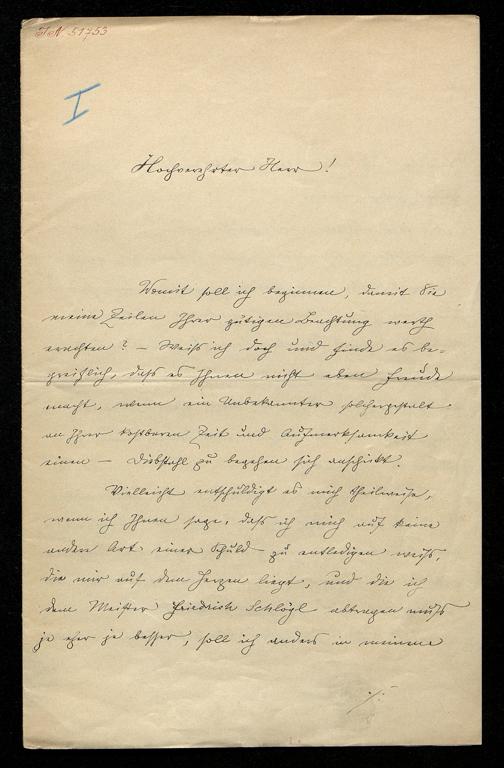 I.N. 51753
I
Hochverehrter Herr!
Womit soll ich beginnen, damit Sie
meine Zeilen Ihrer gütigen Beachtung werth
erachten? – Weiß ich doch und finde es be-
greiflich, daß es Ihnen nicht eben Freude
macht, wenn ein Unbekannter solchergestalt
an Ihrer kostbaren Zeit und Aufmerksamkeit
einen – Diebstahl zu begehen sich anschickt.
Vielleicht entschuldigt es mich theilweise,
wenn ich Ihnen sage, daß ich mich auf keine
andere Art einer Schuld zu entledigen weiß,
die mir auf dem Herzen liegt, und die ich
dem Meister Friedrich Schlögl abtragen muß
je eher je besser, soll ich anders in meinem
./.